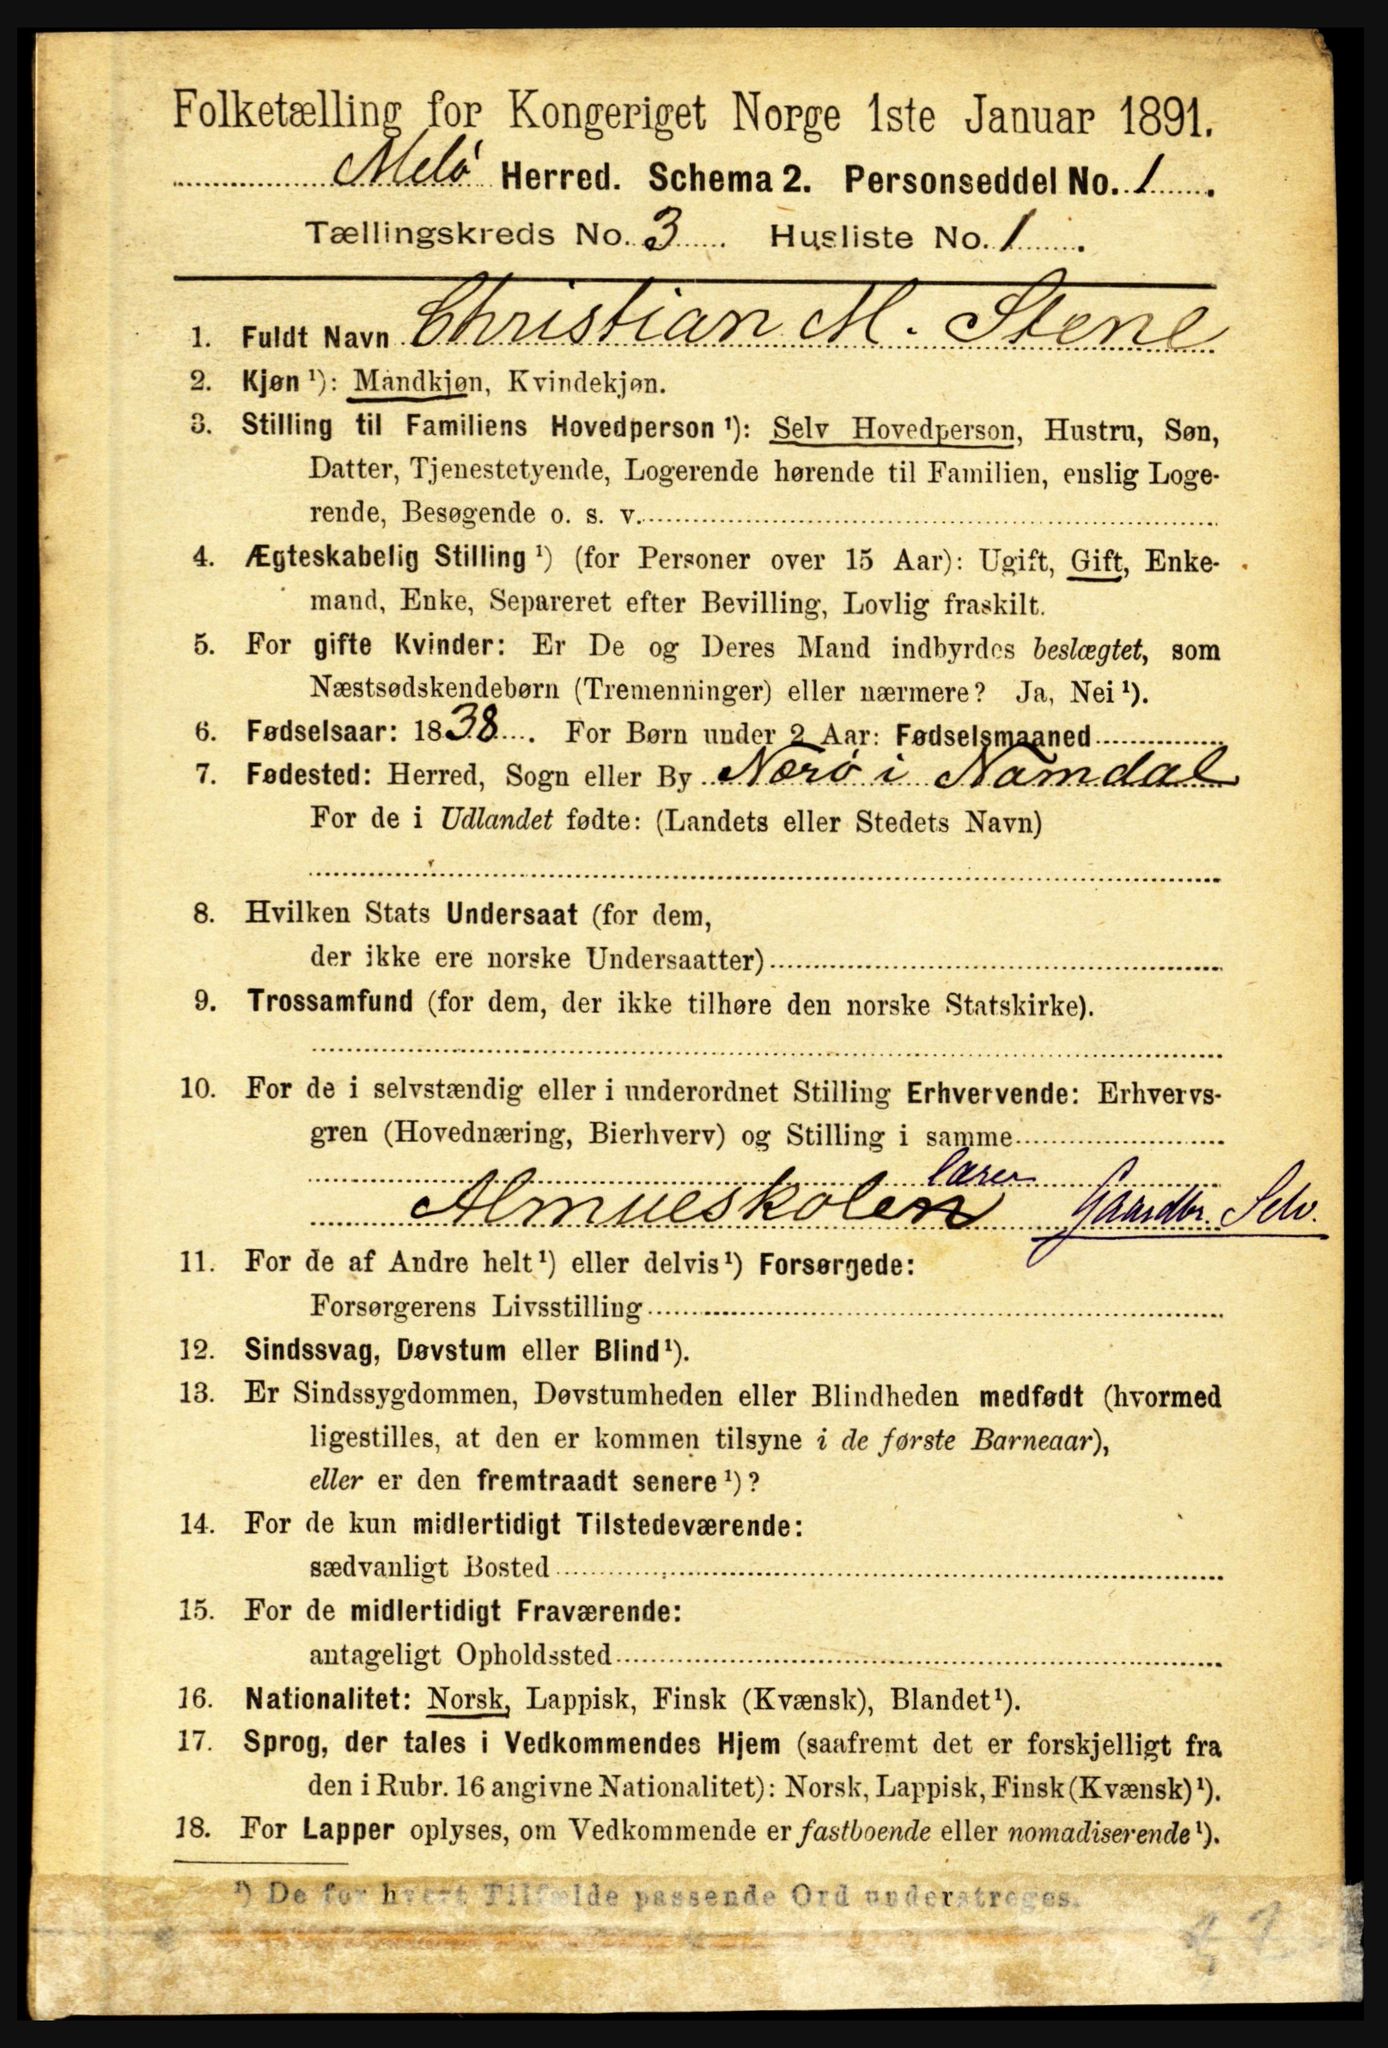 Folketælling for Kongeriget Norge 1ste Januar 1891.
Melö Herred. Schema 2. Personseddel No. 1.
Tællingskreds No. 3. Husliste No. 1.
1. Fuldt Navn Christian M. Stene
2. Kjøn ¹): Mandkjøn, Kvindekjøn.
3. Stilling til Familiens Hovedperson ¹): Selv Hovedperson, Hustru, Søn,
Datter, Tjenestetyende, Logerende hørende til Familien, enslig Loge-
rende, Besøgende o. s. v.
4. Ægteskabelig Stilling ¹) (for Personer over 15 Aar): Ugift, Gift, Enke-
mand, Enke, Separeret efter Bevilling, Lovlig fraskilt.
5. For gifte Kvinder: Er De og Deres Mand indbyrdes beslægtet, som
Næstsødskendebørn (Tremenninger) eller nærmere? Ja, Nei ¹).
6. Fødselsaar: 1838. For Børn under 2 Aar: Fødselsmaaned
7. Fødested: Herred, Sogn eller By Nærö i Namdal
For de i Udlandet fødte: (Landets eller Stedets Navn)
8. Hvilken Stats Undersaat (for dem,
der ikke ere norske Undersaatter)
9. Trossamfund (for dem, der ikke tilhøre den norske Statskirke).
10. For de i selvstændig eller i underordnet Stilling Erhvervende: Erhvervs-
gren (Hovednæring, Bierhverv) og Stilling i samme
lærer
Almueskolen Gaardbr. Selv.
11. For de af Andre helt ¹) eller delvis ¹) Forsørgede:
Forsørgerens Livsstilling
12. Sindssvag, Døvstum eller Blind ¹).
13. Er Sindssygdommen, Døvstumheden eller Blindheden medfødt (hvormed
ligestilles, at den er kommen tilsyne i de første Barneaar),
eller er den fremtraadt senere ¹)?
14. For de kun midlertidigt Tilstedeværende:
sædvanligt Bosted
15. For de midlertidigt Fraværende:
antageligt Opholdssted
16. Nationalitet: Norsk, Lappisk, Finsk (Kvænsk), Blandet ¹).
17. Sprog, der tales i Vedkommendes Hjem (saafremt det er forskjelligt fra
den i Rubr. 16 angivne Nationalitet): Norsk, Lappisk, Finsk (Kvænsk) ¹).
18. For Lapper oplyses, om Vedkommende er fastboende eller nomadiserende ¹).
¹) De for hvert Tilfælde passende Ord understreges.